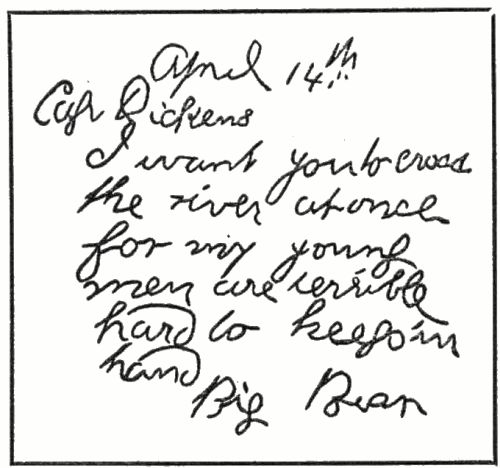 April 14th
Capt Dickens
I want you to cross
the river at once
for my young
men are terrible
hard to keep in
hand
Big Bear